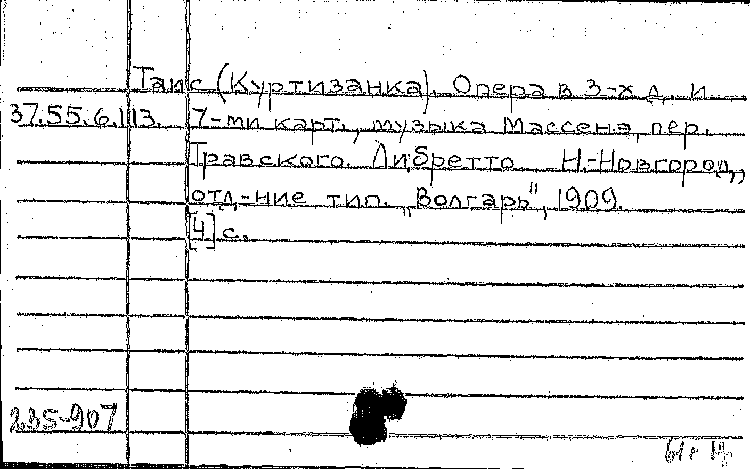 Таис (Куртизанка). Опера в 3-х д. и
37.55.6.113. 7-ми карт., музыка Массенэ, пер.
Травского. Либретто. Н.-Новгород,
отд-ние тип. „Волгарь", 1909.
[4] с.
235-907